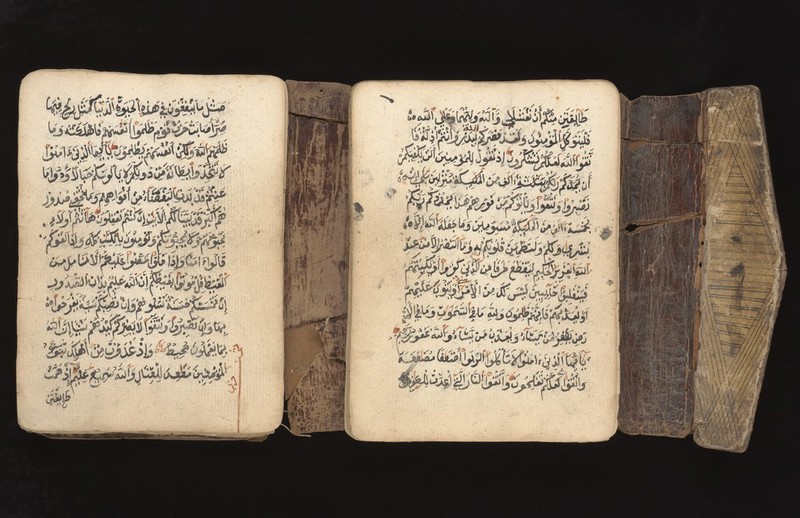 مثل ما ينفقون في هذه الحيوة الدنيا كمثل ريح فيها
صر أصابت حرث قوم ظلموا أنفسهم فأهلكته وما
ظلمهم الله ولكن أنفسهم يظلمون يأيها الذين ءامنوا
لا تتخذوا بطانة من دونكم لا يألونكم خبالا ودوا ما
عنتم قد بدت البغضاء من أفواههم وما تخفي صدور
هم أكبر قد بينا لكم الأيت إن كنتم تعقلون هأنتم أولاء
تحبونهم ولا يحبونكم وتؤمنون بالكتب كله وإذا لقوكم
قالوا ءامنا وإذا خلوا عضوا عليكم الأنامل من
الغيظ قل موتوا بغيظكم إن الله عليم بذات الصدور
إن تمسسكم حسنة تسؤهم وإن تصبكم سيئة يفرحوا
بها وإن تصبروا وتتقوا لا يضركم كيدهم شيئا إن الله
بما يعملون محيط وإذ غدوت من أهلك تبوئ
المؤمنين مقعد للقتال والله سميع عليم إذ همت
طايفتين
طايفتين منكم أن تفشلا والله وليهما وعلى الله
فليتوكل المؤمنون ولقد نصركم الله ببدر وأنتم أذلة فا
تقوا الله لعلكم تشكرون إذ تقول للمؤمنين ألن يكفيكم
أن يمدكم ربكم بثلثة ءالف من الملئكة منزلين بلى إن
تصبروا وتتقوا ويأتوكم من فورهم هذا يمددكم ربكم
بخمسة ءالف من الملئكة مسومين وما جعله الله إلا
بشرى لكم ولتطمئن قلوبكم به وما النصر إلا من عند
الله العزيز الحكيم ليقطع طرفا من الذين كفروا أو يكبتهم
فينقلبوا خايبين ليس لك من الأمر شيء أو يتوب عليهم
أو يعذبهم فإنهم ظلمون ولله ما في السموت وما في الأ
رض يغفر لمن يشاء ويعذب من يشاء والله غفور رحيم
يأيها الذين ءامنوا لا تأكلوا الربوا أضعفا مضعفة
واتقوا الله لعلكم تفلحون واتقوا النار التي أعدت للكفرين